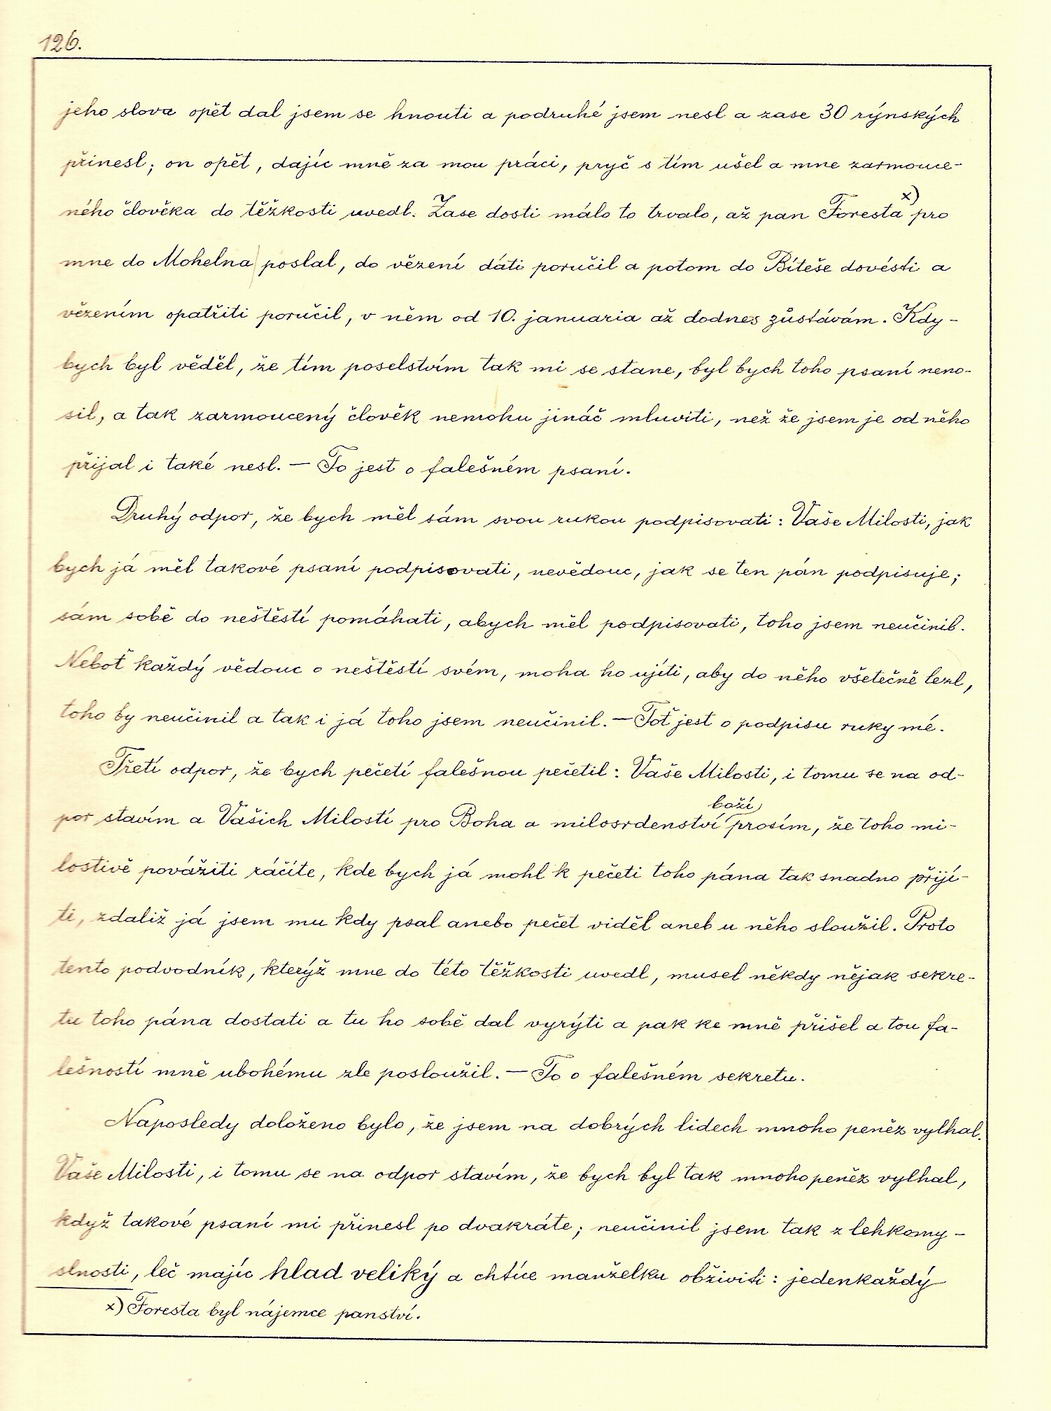 126.
jeho slova opět dal jsem se hnouti a podruhé jsem nesl a zase 30 rýnských
přinesl; on opět, dajíc mně za mou práci, pryč s tím ušel a mne zarmouce-
ného člověka do těžkosti uvedl. Zase dosti málo to trvalo, až pan Foresta x) pro
mne do Mohelna poslal, do vězení dáti poručil a potom do Bíteše dovésti a
vězením opatřiti poručil, v něm od 10. januaria až dodnes zůstávám. Kdy-
bych byl věděl, že tím poselstvím tak mi se stane, byl bych toho psaní neno-
sil, a tak zarmoucený člověk nemohu jináč mluviti, než že jsem je od něho
přijal i také nesl. — To jest o falešném psaní.
Druhý odpor, že bych měl sám svou rukou podpisovati: Vaše Milosti, jak
bych já měl takové psaní podpisovati, nevědouc, jak se ten pán podpisuje;
sám sobě do neštěstí pomáhati, abych měl podpisovati, toho jsem neučinil.
Neboť každý vědouc o neštěstí svém, moha ho ujíti, aby do něho všetečně lezl,
toho by neučinil a tak i já toho jsem neučinil. — Toť jest o podpisu ruky mé.
Třetí odpor, že bych pečetí falešnou pečetil: Vaše Milosti, i tomu se na od-
por stavím a Vašich Milostí pro Boha a milosrdenství boží prosím, že toho mi-
lostivě povážiti ráčíte, kde bych já mohl k pečeti toho pána tak snadno přijí-
ti, zdaliž já jsem mu kdy psal anebo pečet viděl aneb u něho sloužil. Proto
tento podvodník, kterýž mne do této těžkosti uvedl, musel někdy nějak sekre-
tu toho pána dostati a tu ho sobě dal vyrýti a pak ke mně přišel a tou fa-
lešností mně ubohému zle posloužil. — To o falešném sekretu.
Naposledy doloženo bylo, že jsem na dobrých lidech mnoho peněz vylhal.
Vaše Milosti, i tomu se na odpor stavím, že bych byl tak mnoho peněz vylhal,
když takové psaní mi přinesl po dvakráte; neučinil jsem tak z lehkomy-
slnosti, leč majíc hlad veliký a chtíce manželku obživiti: jedenkaždý
x) Foresta byl nájemce panství.